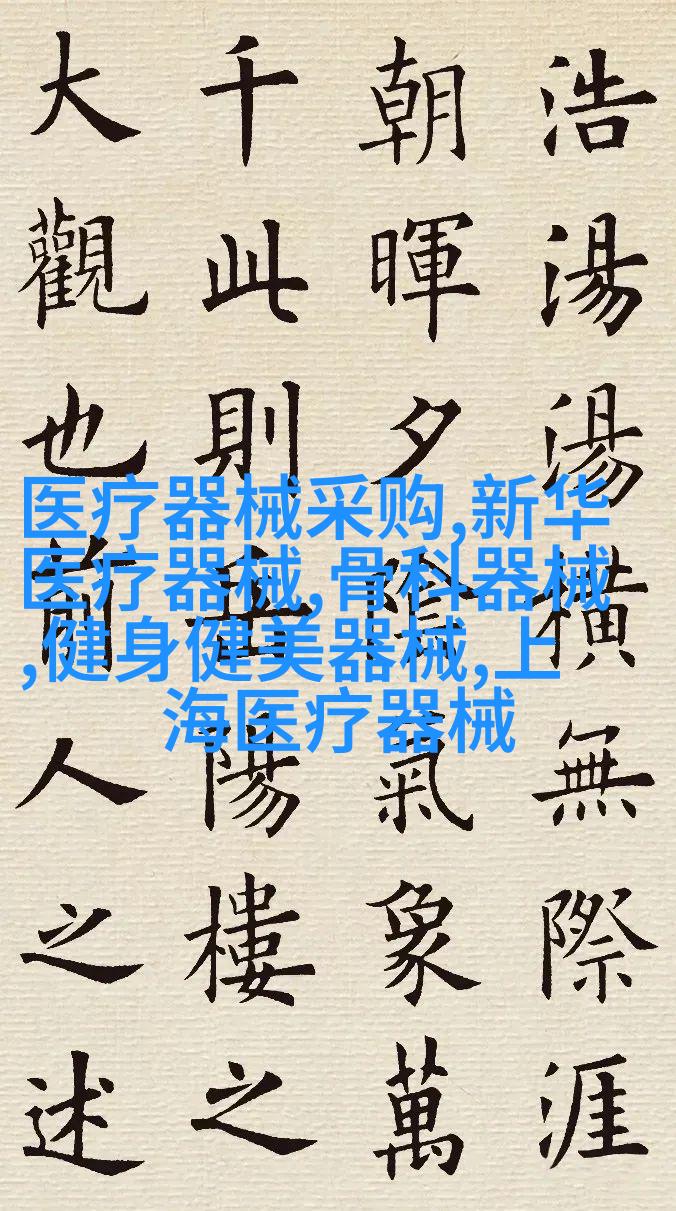 浩湯湯橫無際涯
朝暉夕陰氣象萬
千此則岳陽樓之
大觀也前人之述
医疗器械采购,新华
医疗器械,骨科器械
,健身健美器械,上
海医疗器械